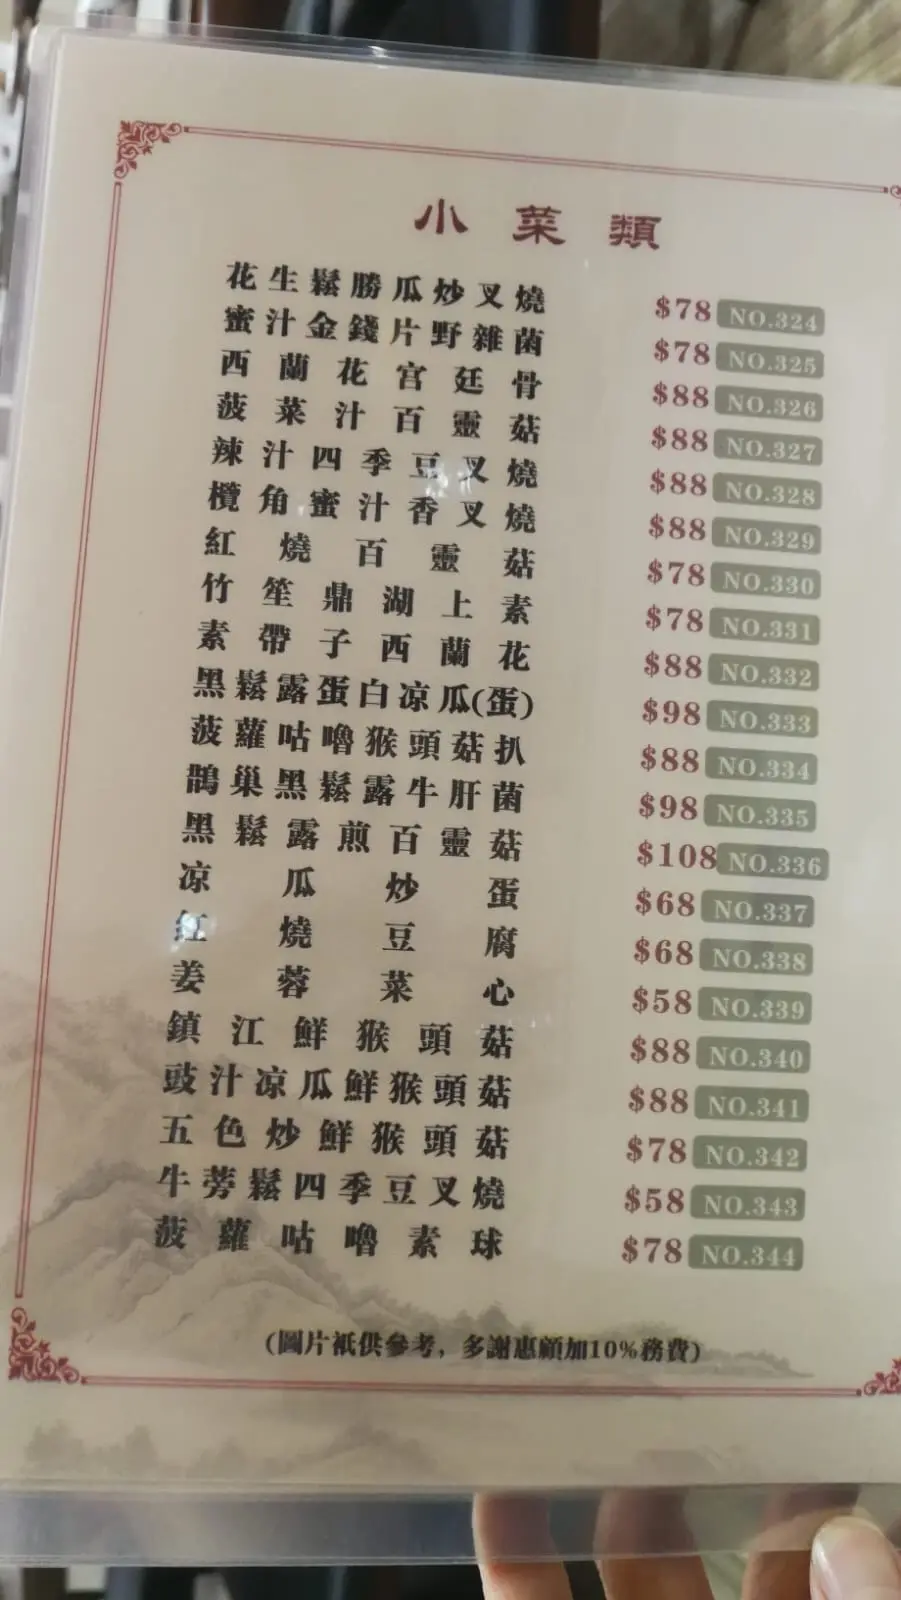 小菜類
花生鬆勝瓜炒叉燒 $78 NO.324
蜜汁金錢片野雜菌 $78 NO.325
西蘭花宮廷骨 $88 NO.326
菠菜汁百靈菇 $88 NO.327
辣汁四季豆叉燒 $88 NO.328
欖角蜜汁香叉燒 $88 NO.329
紅燒百靈菇 $78 NO.330
竹笙鼎湖上素 $78 NO.331
素帶子西蘭花 $88 NO.332
黑鬆露蛋白凉瓜(蛋) $98 NO.333
菠蘿咕嚕猴頭菇扒 $88 NO.334
鵲巢黑鬆露牛肝菌 $98 NO.335
黑鬆露煎百靈菇 $108 NO.336
凉瓜炒蛋 $68 NO.337
紅燒豆腐 $68 NO.338
姜蓉菜心 $58 NO.339
鎮江鮮猴頭菇 $88 NO.340
豉汁凉瓜鮮猴頭菇 $88 NO.341
五色炒鮮猴頭菇 $78 NO.342
牛蒡鬆四季豆叉燒 $58 NO.343
菠蘿咕嚕素球 $78 NO.344
(圖片衹供參考, 多謝惠顧加10%務費)